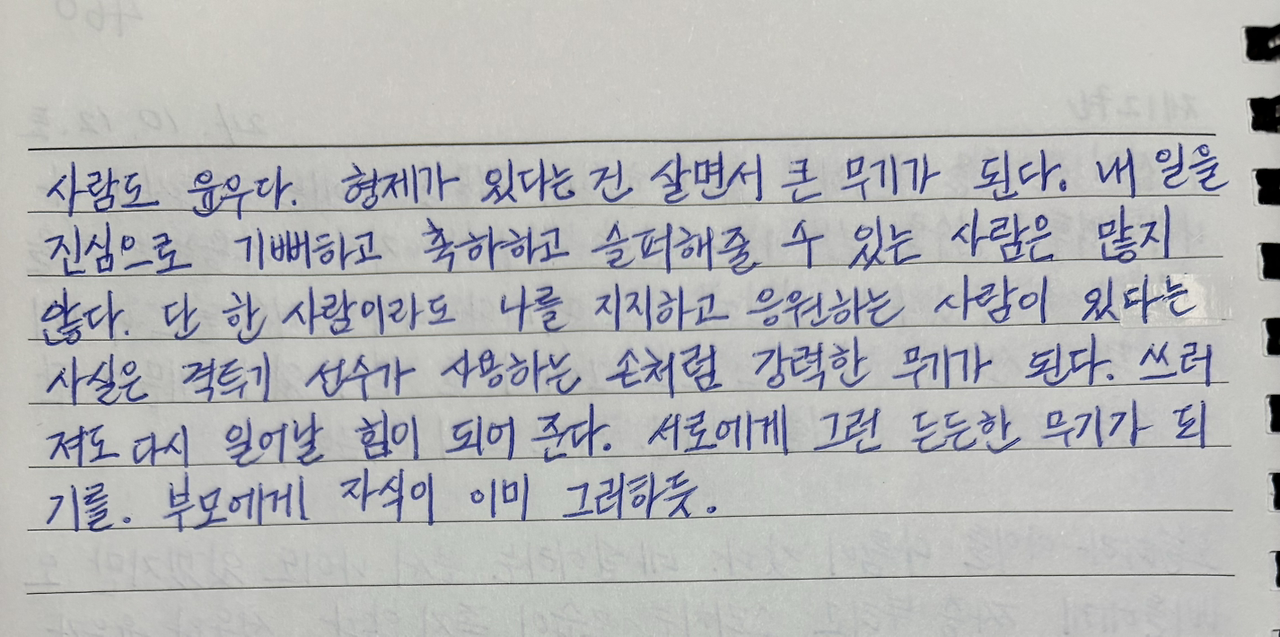 사람도 윤우다. 형제가 있다는 건 살면서 큰 무기가 된다. 내 일을
진심으로 기뻐하고 축하하고 슬퍼해줄 수 있는 사람은 많지
않다. 단 한 사람이라도 나를 지지하고 응원하는 사람이 있다는
사실은 격투기 선수가 사용하는 손처럼 강력한 무기가 된다. 쓰러
져도 다시 일어날 힘이 되어 준다. 서로에게 그런 든든한 무기가 되
기를. 부모에게 자식이 이미 그러하듯.